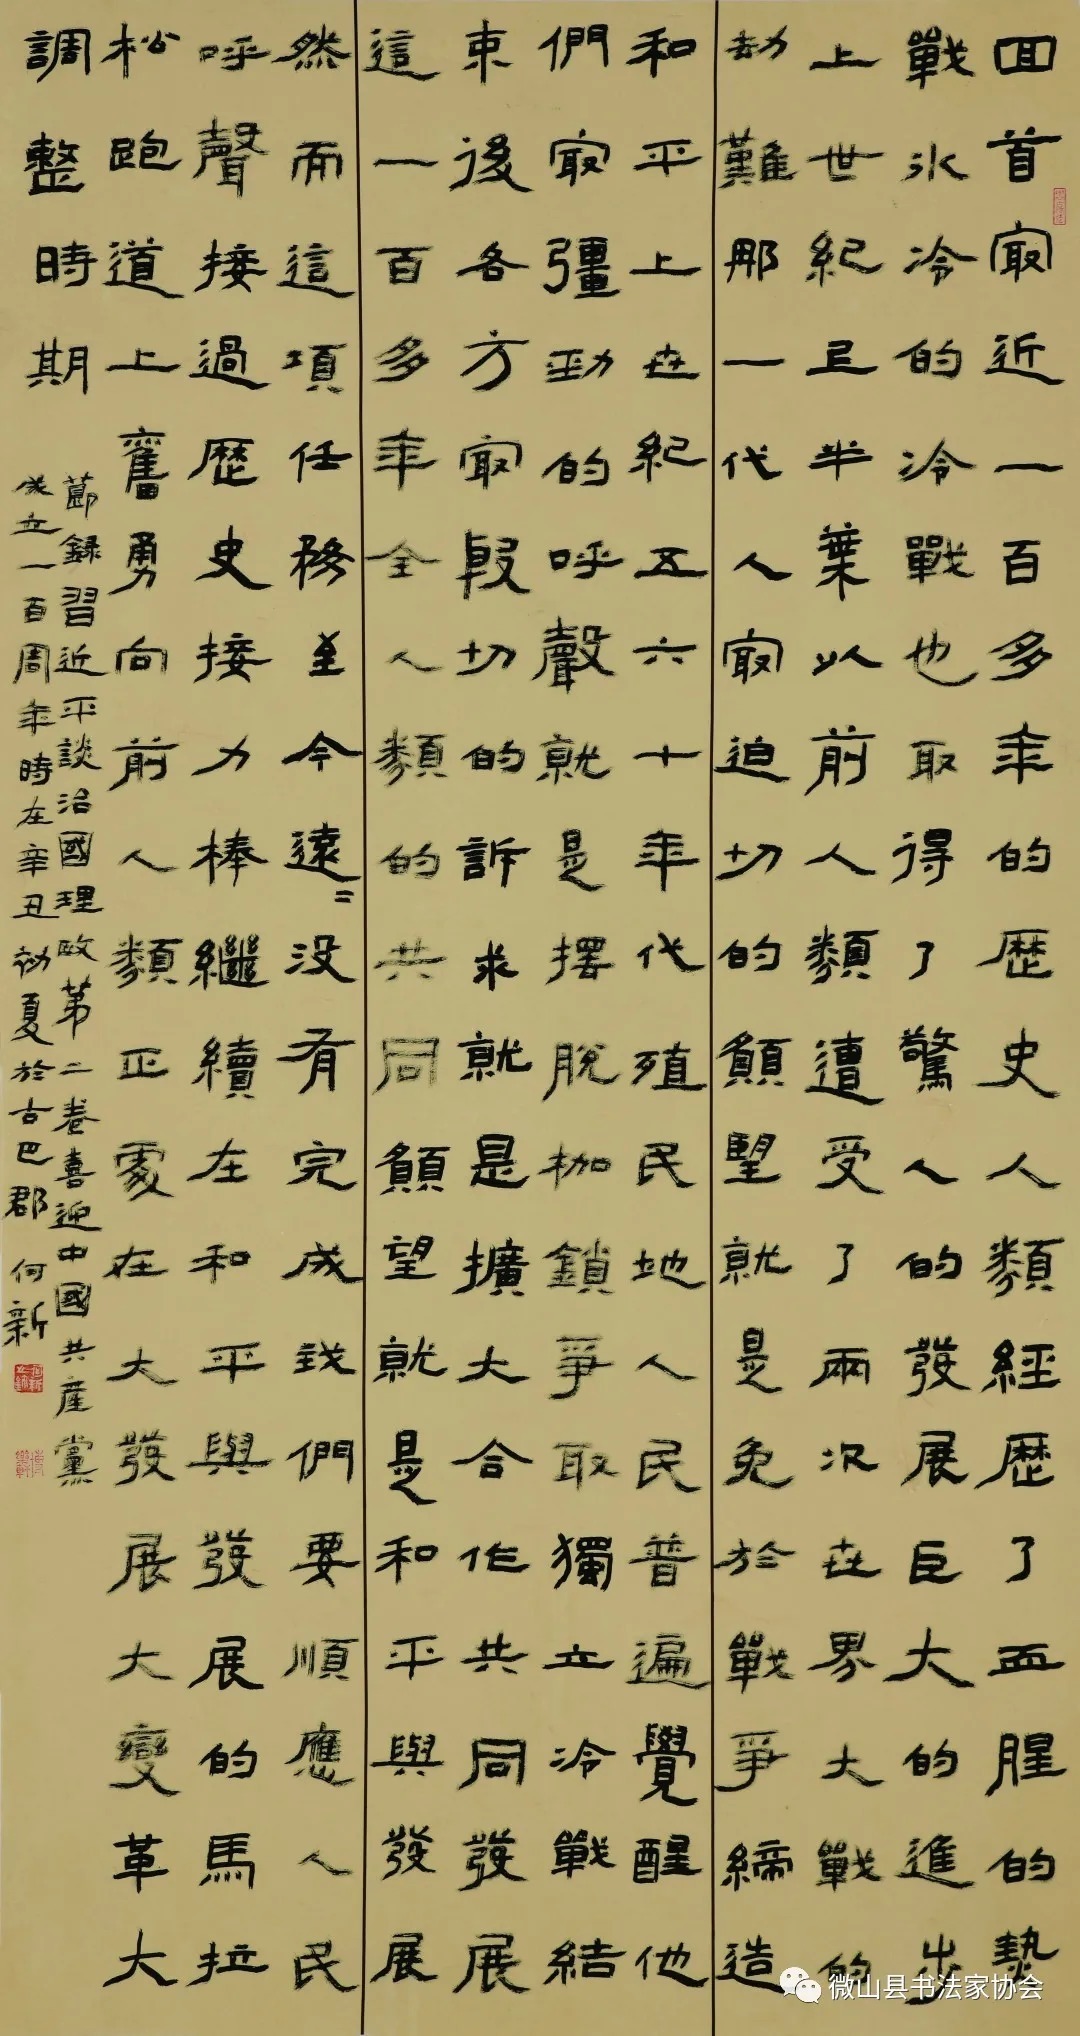 回首最近一百多年的歷史人類經歷了血腥的熱
戰冰冷的冷戰也取得了驚人的發展巨大的進步
上世紀上半葉以前人類遭受了兩次世界大戰的
劫難那一代人最迫切的願望就是免於戰爭締造
和平上世紀五六十年代殖民地人民普遍覺醒他
們最彊勁的呼聲就是擺脫枷鎖爭取獨立冷戰結
束後各方最殷切的訴求就是擴大合作共同發展
這一百多年全人類的共同願望就是和平與發展
然而這項任務至今遠遠沒有完成我們要順應人民
呼聲接過歷史接力棒繼續在和平與發展的馬拉
松跑道上奮勇向前人類正處在大發展大變革大
調整時期
節錄習近平談治國理政第二卷喜迎中國共產黨
成立一百周年時在辛丑初夏於古巴郡何新
微山县书法家协会